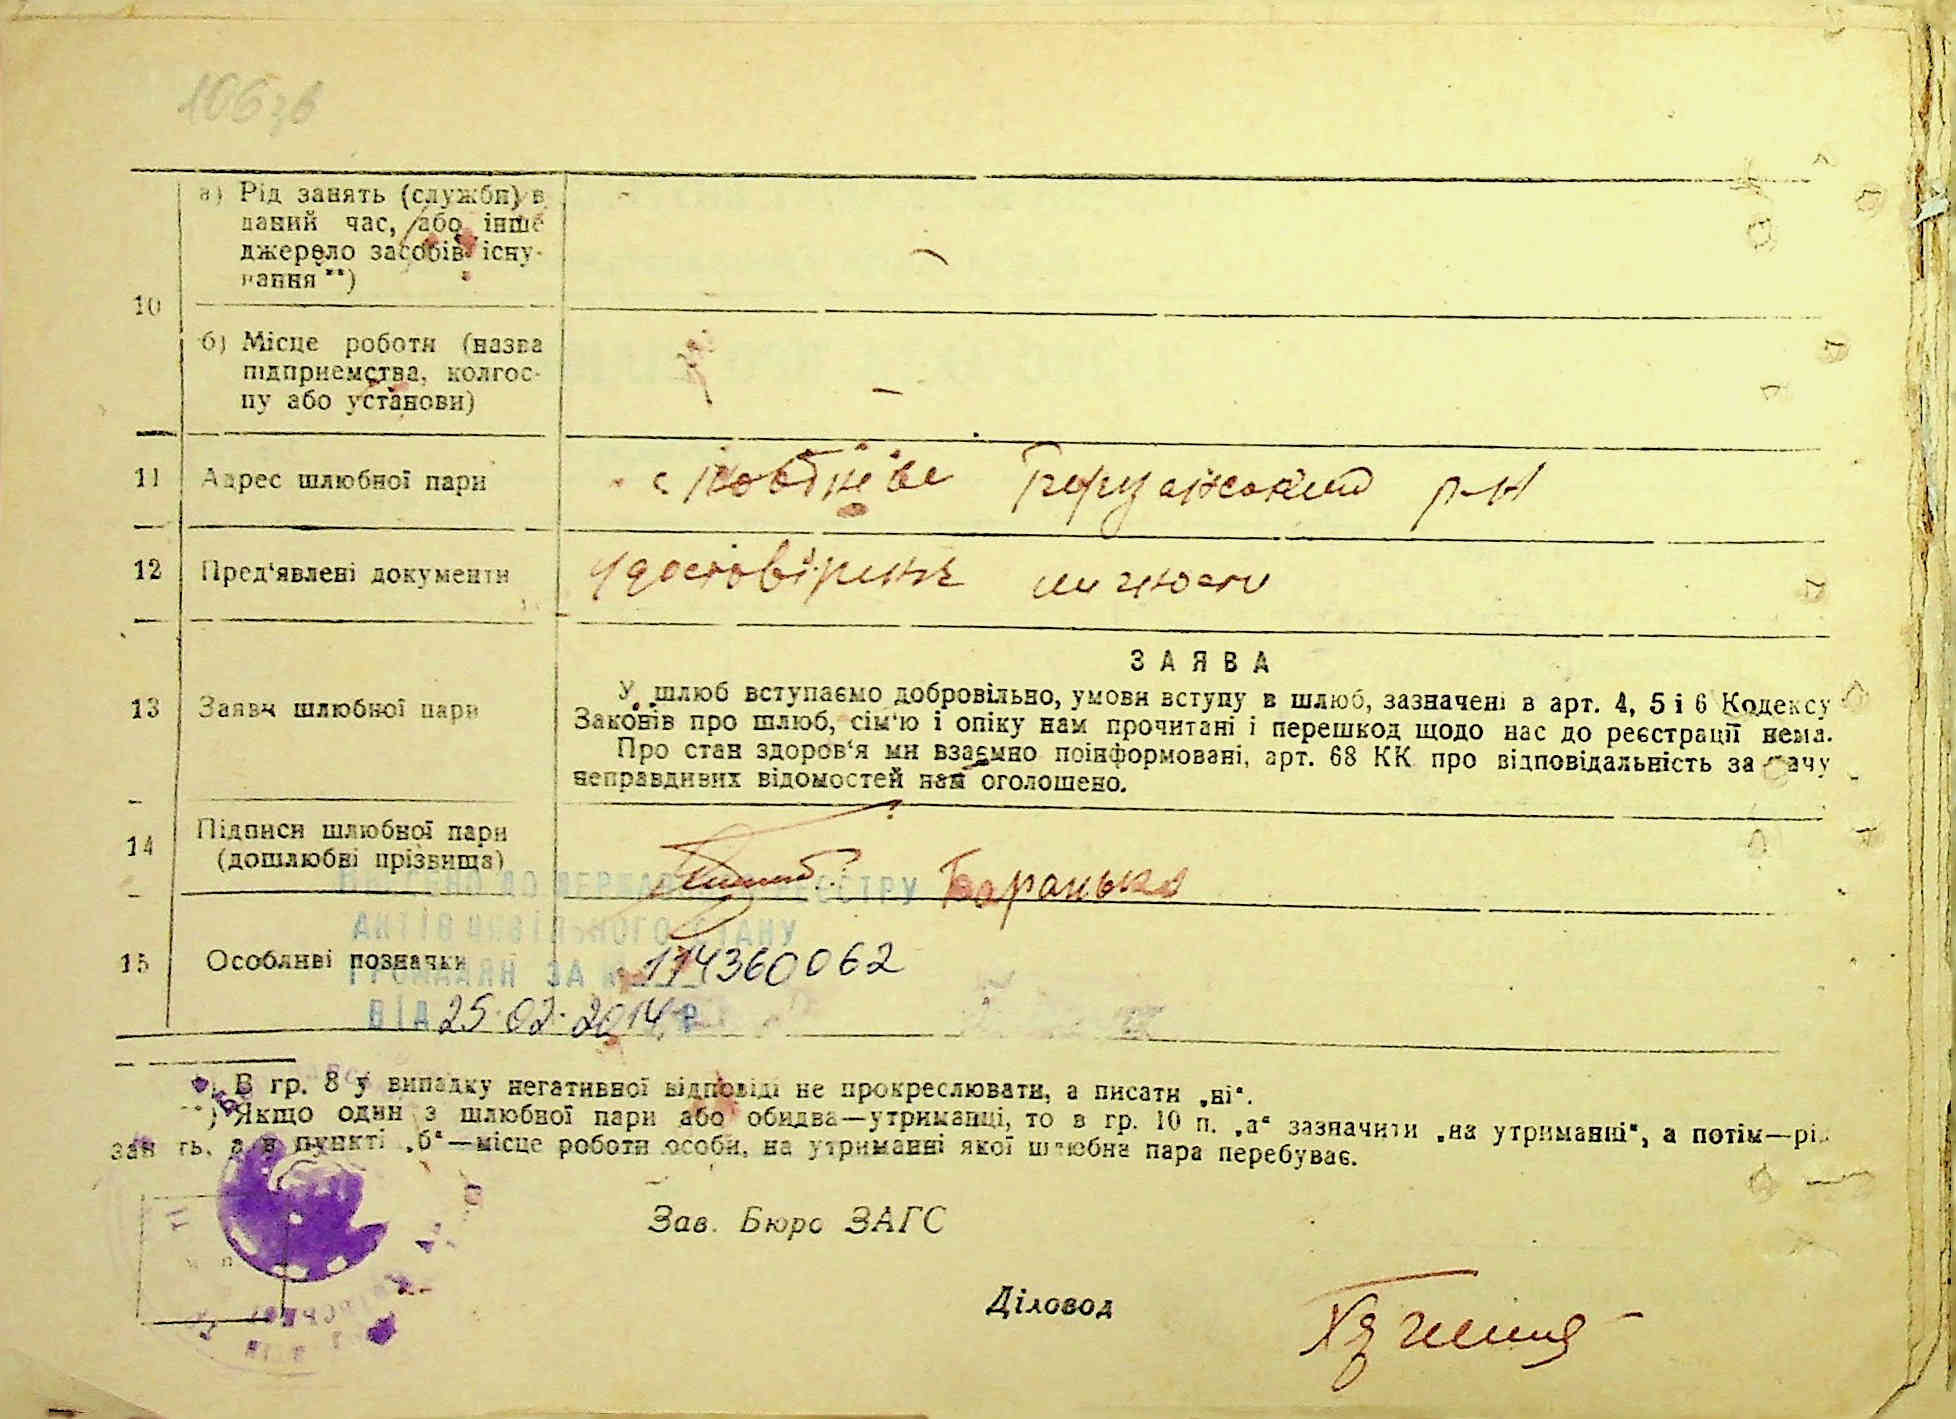 106 зв
10
а) Рід занять (служби) в
даний час, або інше
джерело засобів існу-
вання **)
-
б) Місце роботи (назва
підприємства, колгос-
пу або установи)
-
11 Адрес шлюбної пари с р-н
12 Пред'явлені документи удостовірення личности
ЗАЯВА
13 Заява шлюбної пари
У шлюб вступаємо добровільно, умови вступу в шлюб, зазначені в арт. 4, 5 і 6 Кодексу
Законів про шлюб, сім'ю і опіку нам прочитані і перешкод щодо нас до реєстрації нема.
Про стан здоров'я ми взаємно поінформовані, арт. 68 КК про відповідальність за дачу
неправдивих відомостей нам оголошено.
14 Підписи шлюбної пари
(дошлюбні прізвища)
Баранько
ДО ДЕРЖАВНОГО РЕЄСТРУ
АКТІВ ЦИВІЛЬНОГО СТАНУ
15 Особливі позначки
ГРОМАДЯН ЗА № 114360062
ВІД 25.02.2014 р
*) В гр. 8 у випадку негативної відповіді не прокреслювати, а писати „ні“.
**) Якщо один з шлюбної пари або обидва—утриманці, то в гр. 10 п. „а“ зазначити „на утриманні“, а потім—рід
занять, а в пункті „б“—місце роботи особи, на утриманні якої шлюбна пара перебуває.
Зав. Бюро ЗАГС
Діловод